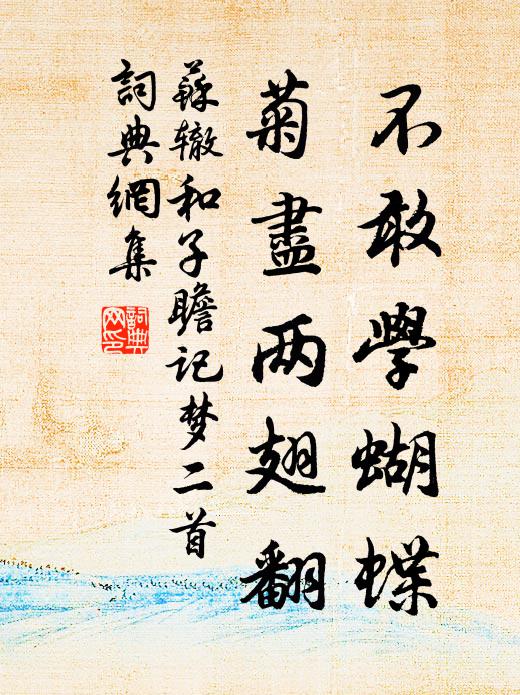 不敢學蝴蝶
菊盡两翅翻
蘇辙和子瞻记梦二首
詞典網集
詞典網印